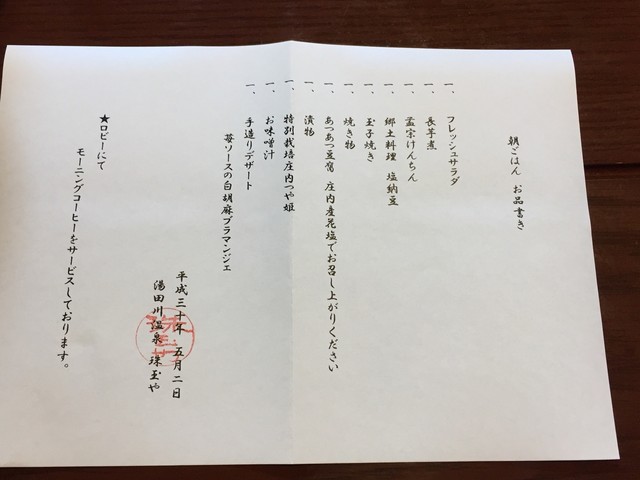 朝ごはん お品書き
一、フレッシュサラダ
一、長芋煮
一、孟宗けんちん
一、郷土料理 塩納豆
一、玉子焼き
一、焼き物
一、あつあつ豆腐 庄内産花塩でお召し上がりください
一、漬物
一、特別栽培庄内つや姫
一、お味噌汁
一、手造りデザート
苺ソースの白胡麻ブラマンジェ
平成三十年 五月二日
湯田川温泉 珠玉や
★ロビーにて
モーニングコーヒーをサービスしております。